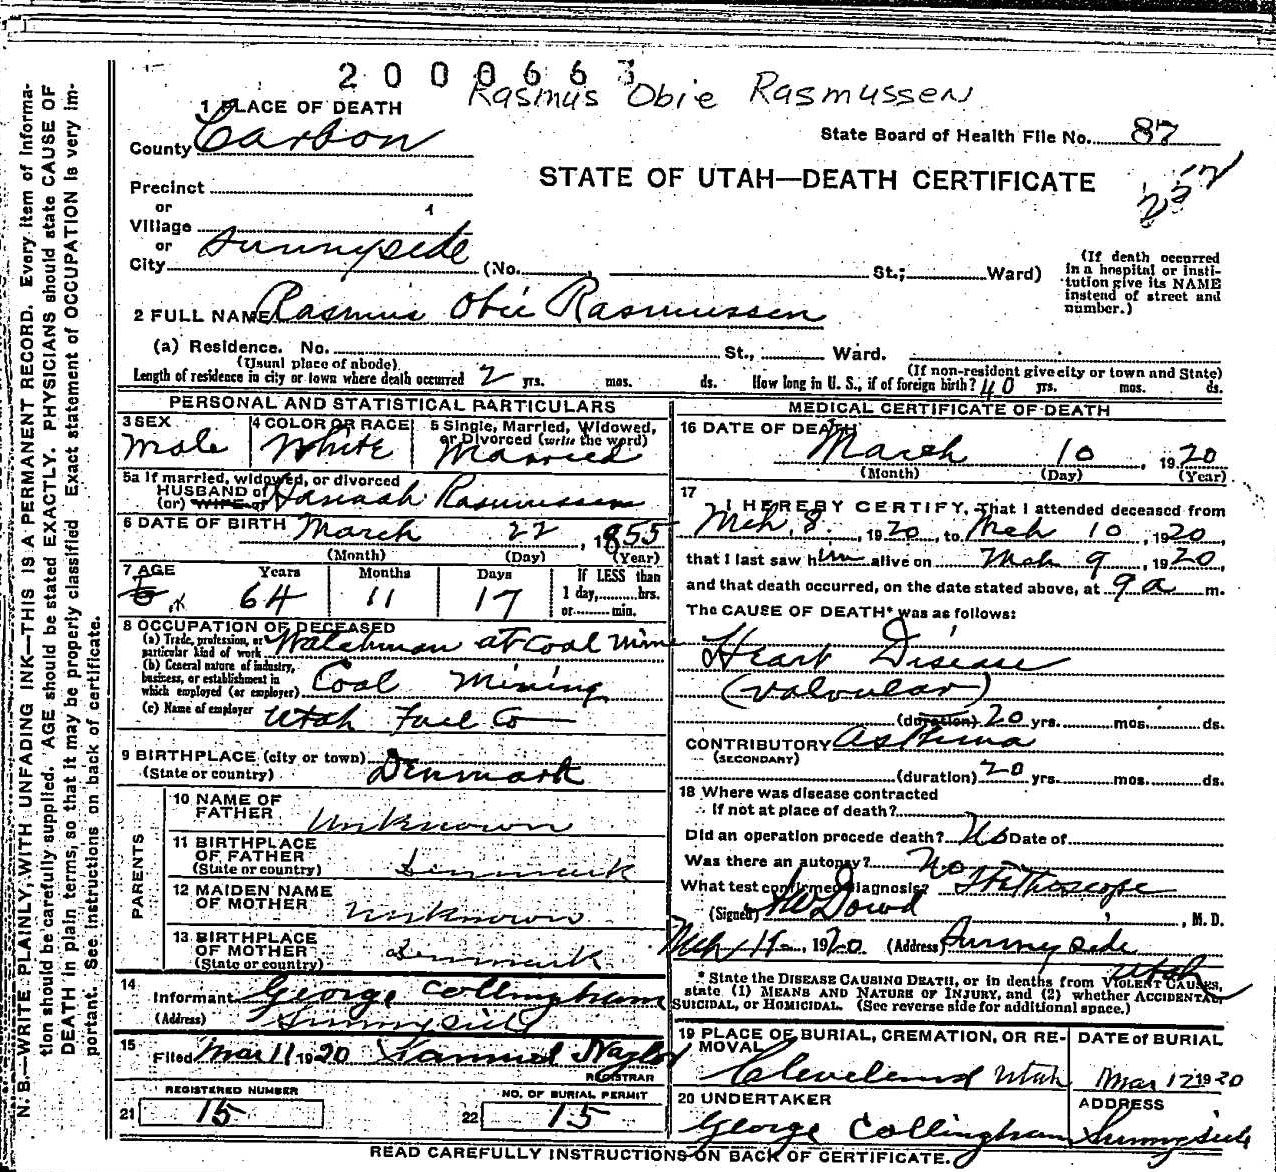 2000663
Rasmus Obie Rasmussen
1 PLACE OF DEATH
County Carbon
State Board of Health File No. 87
STATE OF UTAH—DEATH CERTIFICATE
Precinct
or
Village
or
City Sunnyside (No. , St.; Ward)
(If death occurred in a hospital or insti-
tution give its NAME
instead of street and
number.)
2 FULL NAME Rasmus Obie Rasmussen
(a) Residence. No. St., Ward.
(Usual place of abode) (If non-resident give city or town and State)
Length of residence in city or town where death occurred 2 yrs. mos. ds. How long in U. S., if of foreign birth? 40 yrs. mos. ds.
PERSONAL AND STATISTICAL PARTICULARS
3 SEX Male
4 COLOR OR RACE White
5 Single, Married, Widowed,
or Divorced (write the word)
Married
5a If married, widowed, or divorced
HUSBAND of
(or) WIFE of Hannah Rasmussen
6 DATE OF BIRTH March 22, 1855
(Month) (Day) (Year)
7 AGE Years Months Days If LESS than
64 11 17 1 day, hrs.
or min.
8 OCCUPATION OF DECEASED
(a) Trade, profession, or
particular kind of work Watchman at Coal Mine
(b) General nature of industry,
business, or establishment in
which employed (or employer) Coal Mining
(c) Name of employer Utah Fuel Co
9 BIRTHPLACE (city or town)
(State or country) Denmark
PARENTS
10 NAME OF
FATHER Unknown
11 BIRTHPLACE
OF FATHER
(State or country) Denmark
12 MAIDEN NAME
OF MOTHER Unknown
13 BIRTHPLACE
OF MOTHER
(State or country) Denmark
14
Informant George Collingham
(Address) Sunnyside
15
Filed Mar 11 1920 Samuel J Naylor
REGISTRAR
REGISTERED NUMBER
21 15
NO. OF BURIAL PERMIT
22 15
MEDICAL CERTIFICATE OF DEATH
16 DATE OF DEATH
March 10, 1920
(Month) (Day) (Year)
17
I HEREBY CERTIFY, That I attended deceased from
Mch. 8, 1920, to Mch 10, 1920,
that I last saw him alive on Mch 9, 1920,
and that death occurred, on the date stated above, at 9 a m.
The CAUSE OF DEATH* was as follows:
Heart Disease
(valvular)
(duration) 20 yrs. mos. ds.
CONTRIBUTORY Asthma
(SECONDARY)
(duration) 20 yrs. mos. ds.
18 Where was disease contracted
If not at place of death?
Did an operation precede death? No Date of
Was there an autopsy? No
What test confirmed diagnosis? Stethoscope
(Signed) Dowd, M. D.
Mch 11, 1920 (Address) Sunnyside
Utah
* State the DISEASE CAUSING DEATH, or in deaths from VIOLENT CAUSES,
state (1) MEANS AND NATURE OF INJURY, and (2) whether ACCIDENTAL,
SUICIDAL, or HOMICIDAL. (See reverse side for additional space.)
19 PLACE OF BURIAL, CREMATION, OR RE-
MOVAL
Cleveland Utah
DATE of BURIAL
Mar 12 1920
20 UNDERTAKER
George Collingham
ADDRESS
Sunnyside
READ CAREFULLY INSTRUCTIONS ON BACK OF CERTIFICATE.
N. B.—WRITE PLAINLY, WITH UNFADING INK—THIS IS A PERMANENT RECORD. Every item of informa-
tion should be carefully supplied. AGE should be stated EXACTLY. PHYSICIANS should state CAUSE OF
DEATH in plain terms, so that it may be properly classified. Exact statement of OCCUPATION is very im-
portant. See instructions on back of certificate.